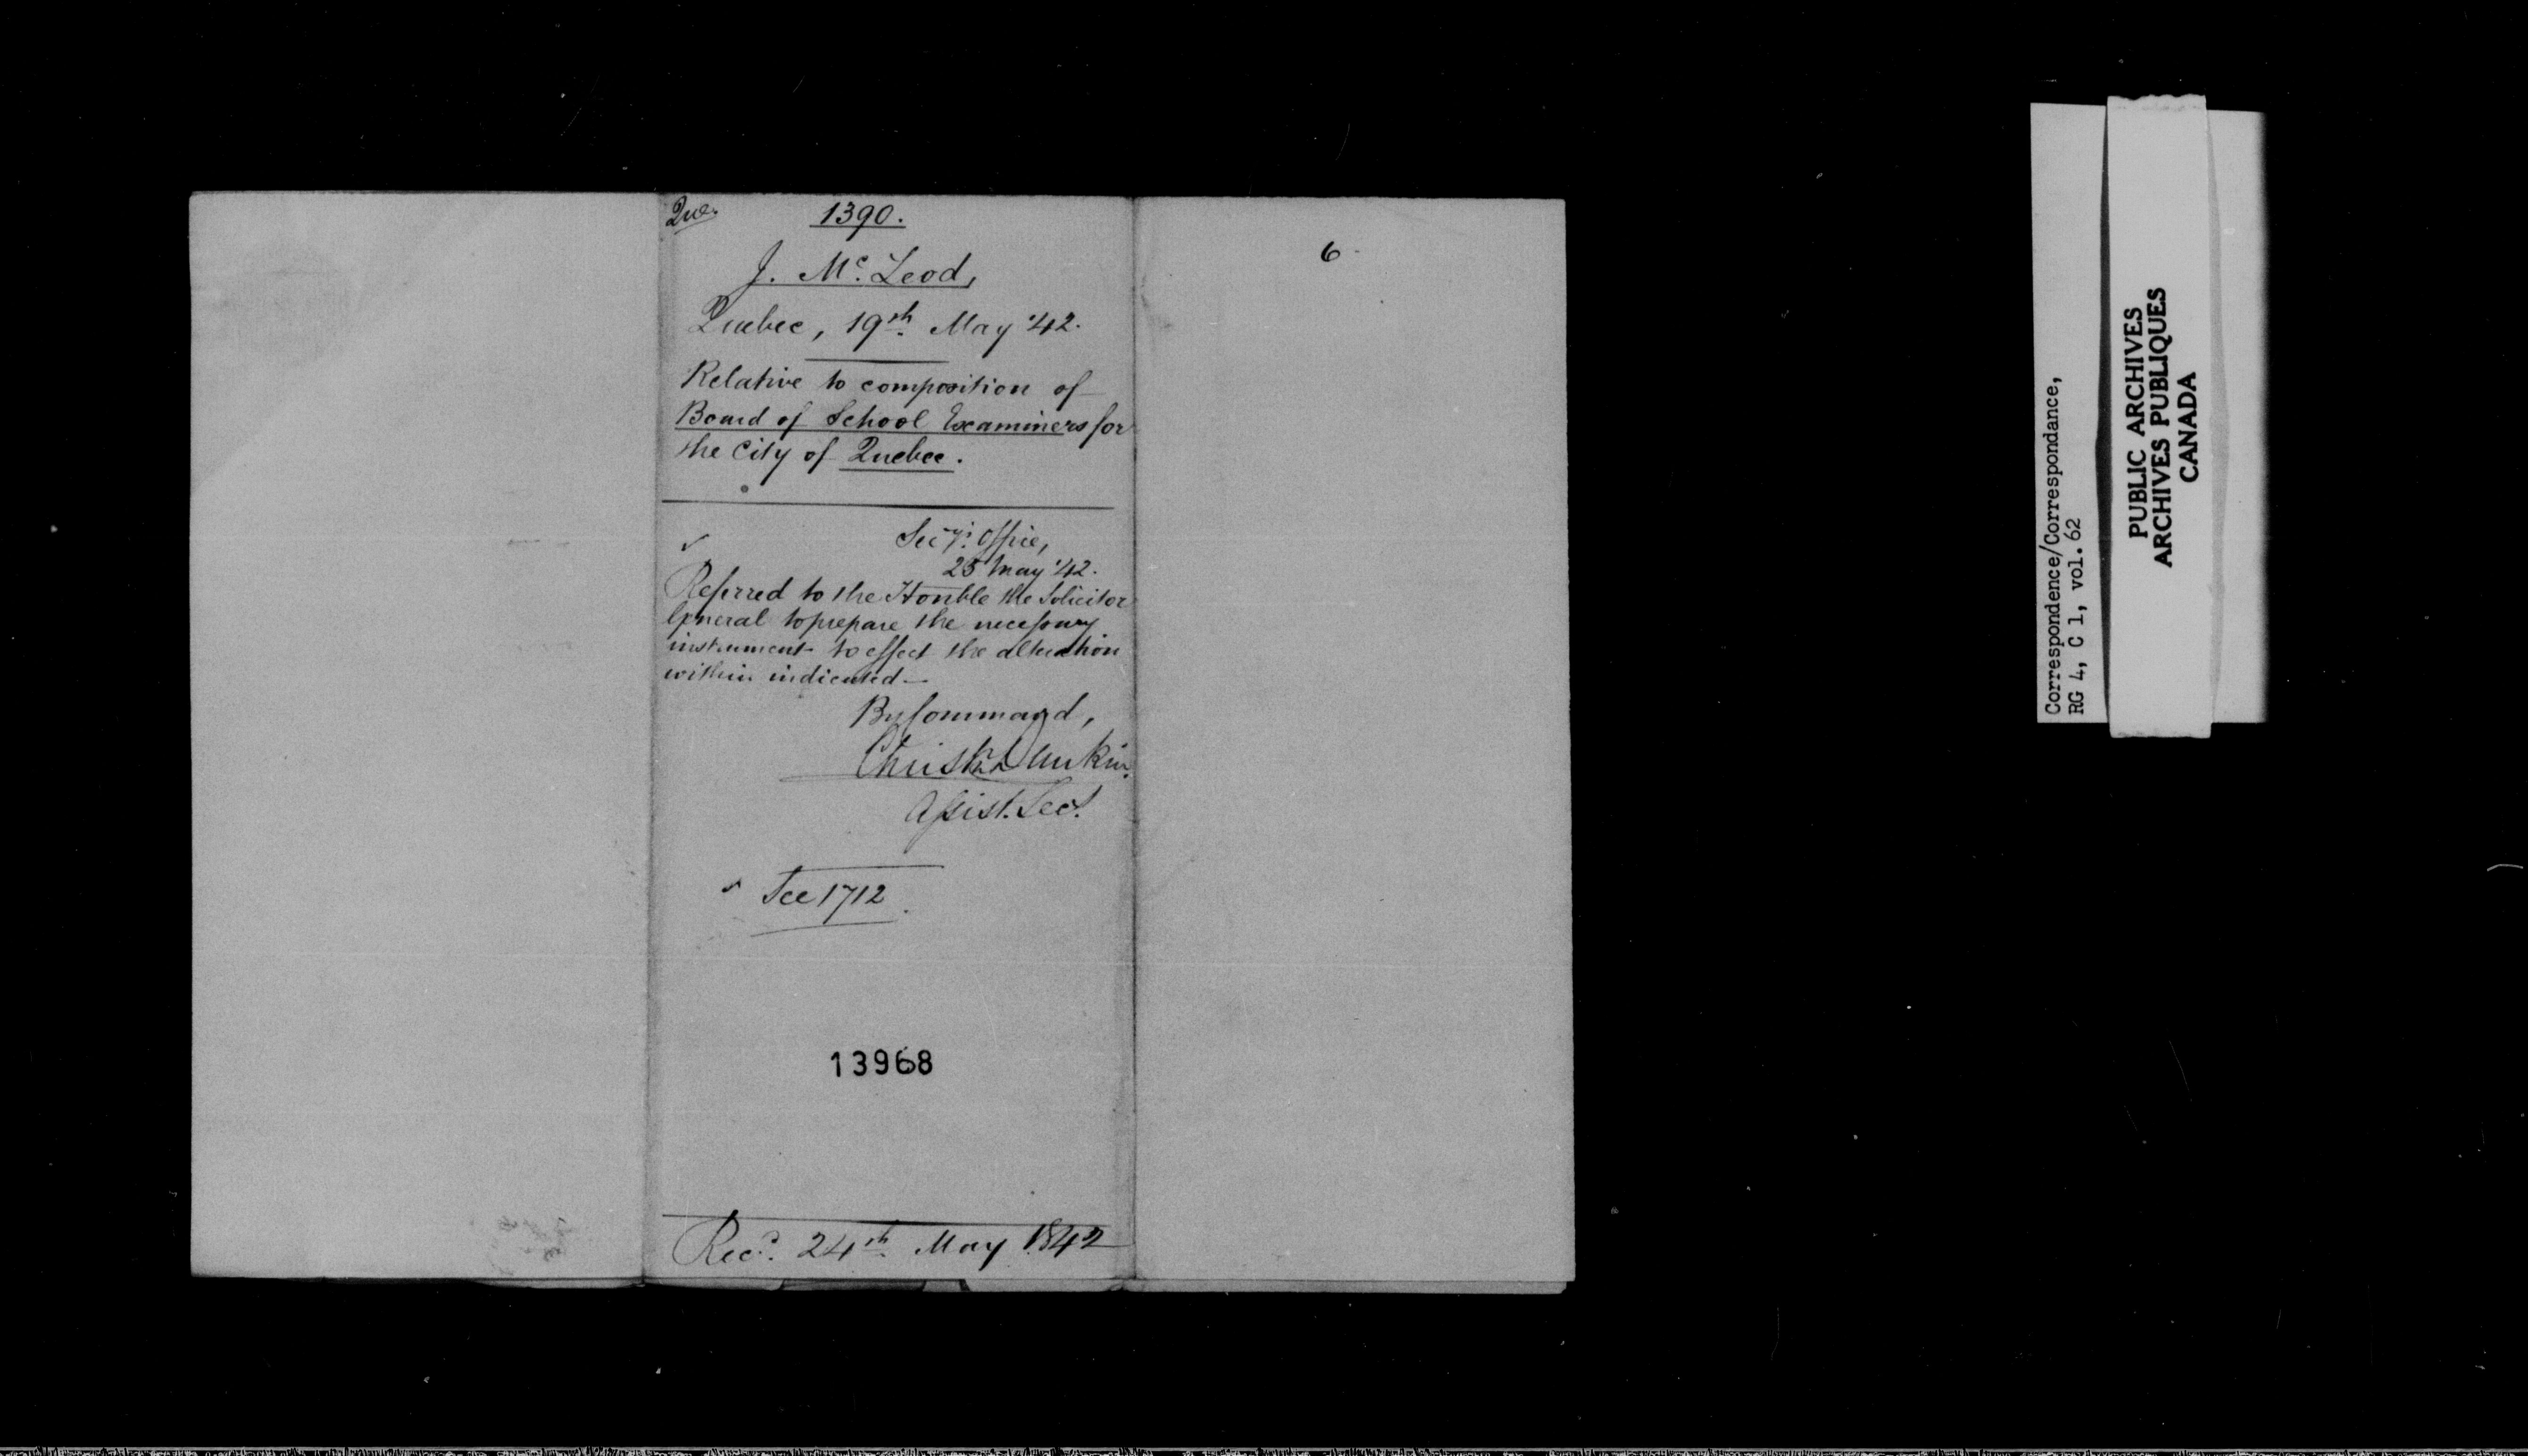 Que.
1390.
J. Mc. Leod,
Quebec, 19th. May '42.
Relative to composition of
Board of School Examiners for
the City of Quebec.
Secy's. Office,
25 May '42.
Referred to the Honble the Solicitor
General to prepare the necessary
instrument to effect the alteration
within indicated—
By Command,
Christr. Dunkin.
Assist. Secy.
See 1712.
13968
Recd. 24th. May 1842
6
Correspondence/Correspondance,
RG 4, C 1, vol. 62
PUBLIC ARCHIVES
ARCHIVES PUBLIQUES
CANADA